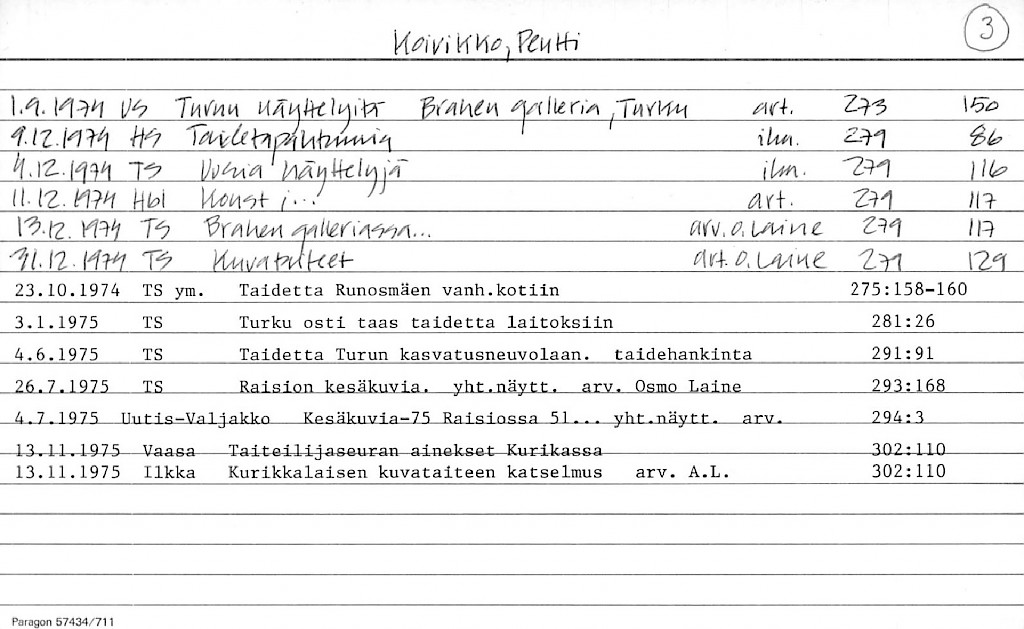 Koivikko, Pentti
3
1.9.1974 US Turun näyttelyitä Brahen galleria, Turku art. 273 150
9.12.1974 HS Taidetapahtumia ilm. 279 86
4.12.1974 TS Uusia näyttelyjä ilm. 279 116
11.12.1974 Hbl Konst i... art. 279 117
13.12.1974 TS Brahen galleriassa... arv. O. Laine 279 117
31.12.1974 TS Kuvataiteet art. O. Laine 279 129
23.10.1974 TS ym. Taidetta Runosmäen vanh.kotiin 275:158-160
3.1.1975 TS Turku osti taas taidetta laitoksiin 281:26
4.6.1975 TS Taidetta Turun kasvatusneuvolaan. taidehankinta 291:91
26.7.1975 TS Raision kesäkuvia. yht.näytt. arv. Osmo Laine 293:168
4.7.1975 Uutis-Valjakko Kesäkuvia-75 Raisiossa 51... yht.näytt. arv. 294:3
13.11.1975 Vaasa Taiteilijaseuran ainekset Kurikassa 302:110
13.11.1975 Ilkka Kurikkalaisen kuvataiteen katselmus arv. A.L. 302:110
Paragon 57434/711